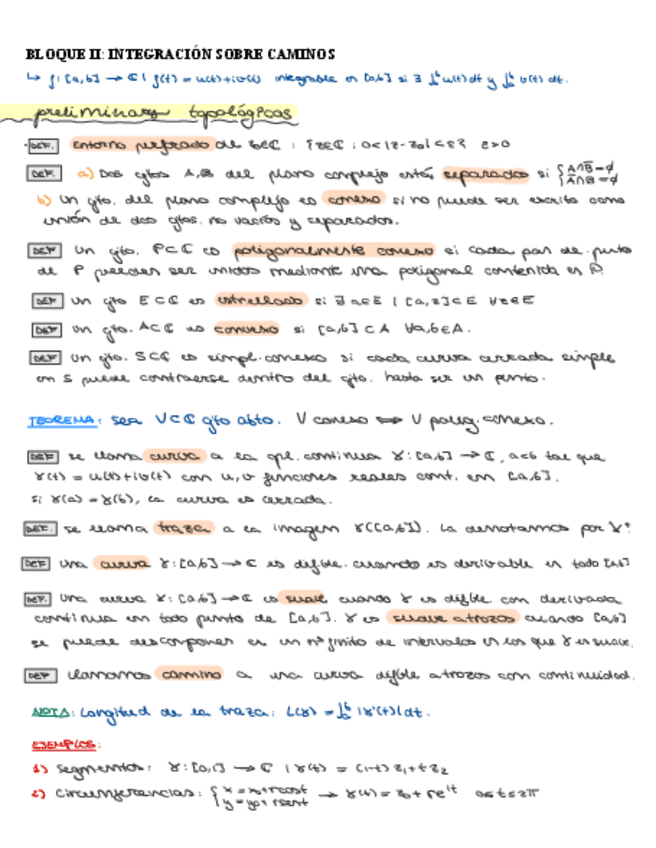 BLOQUE II: INTEGRACIÓN SOBRE CAMINOS
↳ f: [a,b] → ℂ | f(t) = u(t)+iv(t) integrable en [a,b] si ∃ ∫ₐᵇ u(t)dt y ∫ₐᵇ v(t) dt.
preliminares topológicos
DEF. entorno perforado de z₀∈ℂ : {z∈ℂ : 0<|z-z₀|<ε} ε>0
DEF. a) Dos cjtos A,B del plano complejo están separados si { A∩B̅=∅ A̅∩B=∅
b) Un cjto. del plano complejo es conexo si no puede ser escrito como
unión de dos cjtos. no vacíos y separados.
DEF Un cjto. P⊂ℂ es poligonalmente conexo si cada par de puntos
de P pueden ser unidos mediante una poligonal contenida en P.
DEF Un cjto E⊂ℂ es estrellado si ∃ a∈E | [a,z]⊂E ∀z∈E
DEF Un cjto. A⊂ℂ es convexo si [a,b]⊂A ∀a,b∈A.
DEF Un cjto. S⊂ℂ es simpl. conexo si cada curva cerrada simple
en S puede contraerse dentro del cjto. hasta ser un punto.
TEOREMA: sea V⊂ℂ cjto abto. V conexo ⟺ V polig. conexo.
DEF se llama curva a la apl. continua γ: [a,b] → ℂ, a<b tal que
γ(t) = u(t)+iv(t) con u,v funciones reales cont. en [a,b].
Si γ(a) = γ(b), la curva es cerrada.
DEF. Se llama traza a la imagen γ([a,b]). La denotamos por γ*.
DEF Una curva γ: [a,b] → ℂ es difble. cuando es derivable en todo [a,b]
DEF. Una curva γ: [a,b] → ℂ es suave cuando γ es difble con derivada
continua en todo punto de [a,b]. γ es suave a trozos cuando [a,b]
se puede descomponer en un nº finito de intervalos en los que γ es suave.
DEF Llamamos camino a una curva difble a trozos con continuidad.
NOTA: Longitud de la traza: L(γ) = ∫ₐᵇ |γ'(t)| dt.
EJEMPLOS:
1) segmentos: γ: [0,1] → ℂ | γ(t) = (1-t)z₁+tz₂
2) circunferencias: { x = x₀+rcost y = y₀+rsent → γ(t) = z₀ + reⁱᵗ 0≤t≤2π